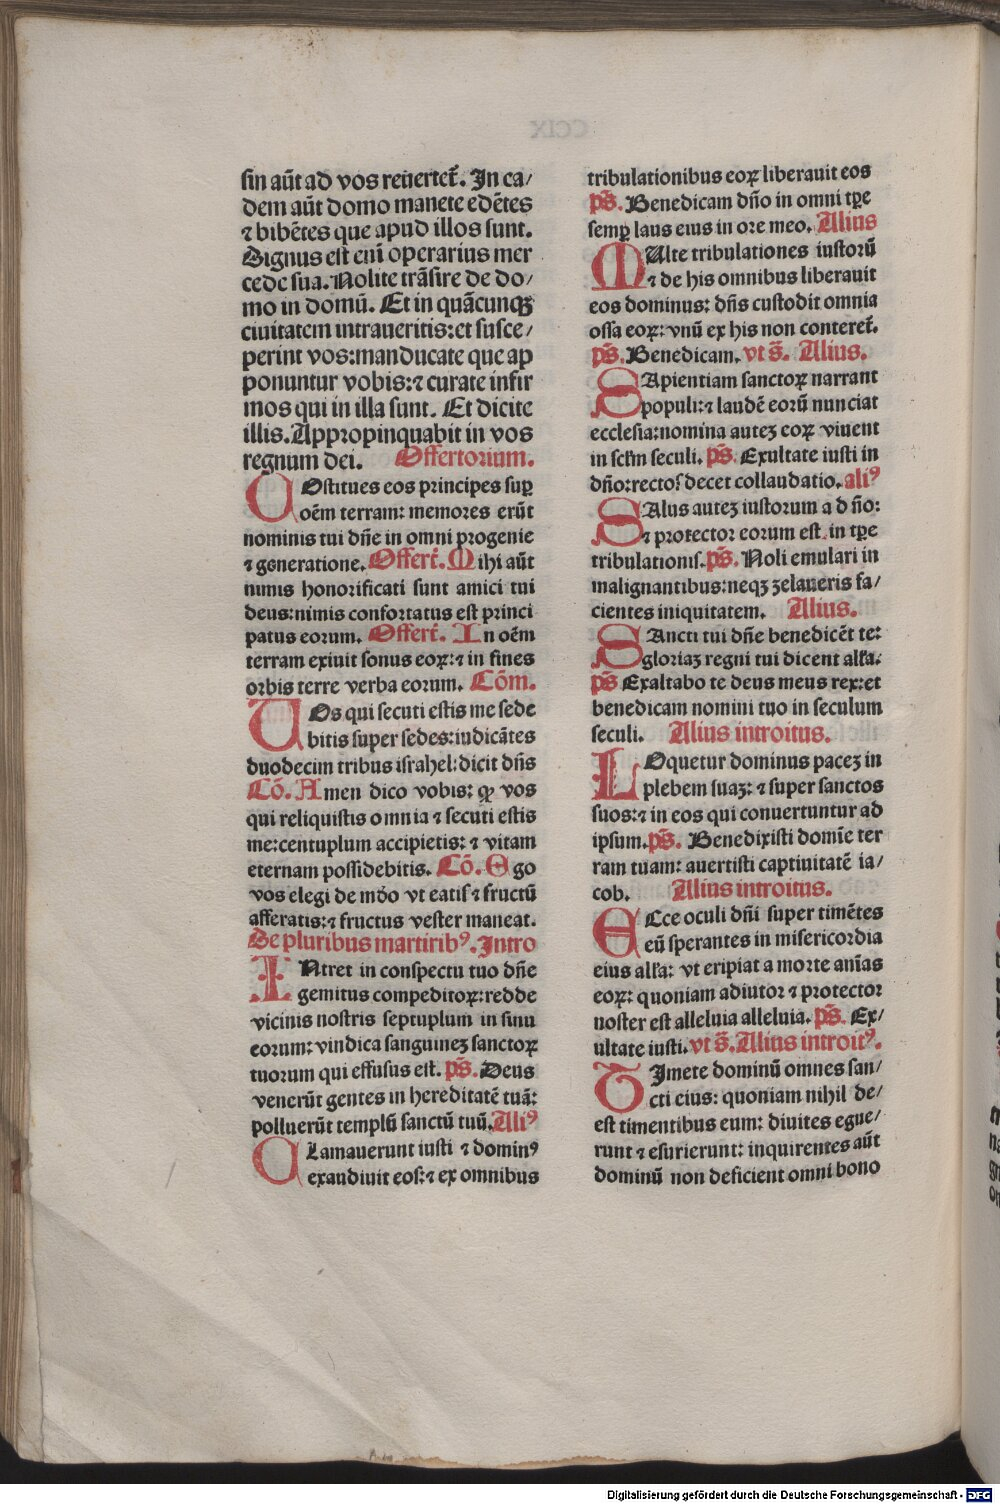 sin aūt ad vos reuertet̄. In ca/
dem aūt domo manete edētes
⁊ bibētes que apud illos sunt.
Dignus est eni operarius mer
cede sua. Nolite trāsire de do/
mo in domū. Et in quācunqꝫ
ciuitatem intraueritis: et susce/
perint vos: manducate que ap
ponuntur vobis: ⁊ curate infir
mos qui in illa sunt. Et dicite
illis. Appropinquabit in vos
regnum dei. Offertorium.
COstitues eos principes suꝑ
oēm terram: memores erūt
nominis tui dn̄e in omni progenie
⁊ generatione. Offert̄. Mihi aūt
nimis honorificati sunt amici tui
deus: nimis confortatus est princi
patus eorum. Offert̄. In oēm
terram exiuit sonus eoꝝ: ⁊ in fines
orbis terre verba eorum. Cōm.
VOs qui secuti estis me sede
bitis super sedes: iudicātes
duodecim tribus israhel: dicit dn̄s
Cō. Amen dico vobis: ꝙ vos
qui reliquistis omnia ⁊ secuti estis
me: centuplum accipietis: ⁊ vitam
eternam possidebitis. Cō. Ego
vos elegi de mūdo vt eatis ⁊ fructū
afferatis: ⁊ fructus vester maneat.
De pluribus martiribꝰ. Intro
INtret in conspectu tuo dn̄e
gemitus compeditoꝝ: redde
vicinis nostris septuplum in sinu
eorum: vindica sanguineꝫ sanctoꝝ
tuorum qui effusus est. ps̄. Deus
venerūt gentes in hereditatē tuā:
polluerūt templū sanctū tuū. Aliꝰ
CLamauerunt iusti ⁊ dominꝰ
exaudiuit eos: ⁊ ex omnibus
tribulationibus eoꝝ liberauit eos
ps̄. Benedicam dn̄o in omni tꝑe
semꝑ laus eius in ore meo. Alius
MUlte tribulationes iustorū
⁊ de his omnibus liberauit
eos dominus: dn̄s custodit omnia
ossa eoꝝ: vnū ex his non conteret̄.
ps̄. Benedicam. vt s̄. Alius.
SApientiam sanctoꝝ narrant
populi: ⁊ laudē eorū nunciat
ecclesia: nomina auteꝫ eoꝝ viuent
in sclm̄ seculi. ps̄. Exultate iusti in
dn̄o: rectos decet collaudatio. aliꝰ
SAlus auteꝫ iustorum a dn̄o:
⁊ protector eorum est in tꝑe
tribulationis. ps̄. Noli emulari in
malignantibus: neqꝫ zelaueris fa/
cientes iniquitatem. Alius.
SAncti tui dn̄e benedicēt te:
gloriaꝫ regni tui dicent alla.
ps̄ Exaltabo te deus meus rex: et
benedicam nomini tuo in seculum
seculi. Alius introitus.
LOquetur dominus paceꝫ in
plebem suaꝫ: ⁊ super sanctos
suos: ⁊ in eos qui conuertuntur ad
ipsum. ps̄. Benedixisti domīe ter
ram tuam: auertisti captiuitatē ia/
cob. Alius introitus.
ECce oculi dn̄i super timētes
eū sperantes in misericordia
eius alla: vt eripiat a morte anīas
eoꝝ: quoniam adiutor ⁊ protector
noster est alleluia alleluia. ps̄. Ex/
ultate iusti. vt s̄. Alius introitꝰ.
TImete dominū omnes san/
cti eius: quoniam nihil de/
est timentibus eum: diuites egue/
runt ⁊ esurierunt: inquirentes aūt
dominū non deficient omni bono
Digitalisierung gefördert durch die Deutsche Forschungsgemeinschaft - DFG